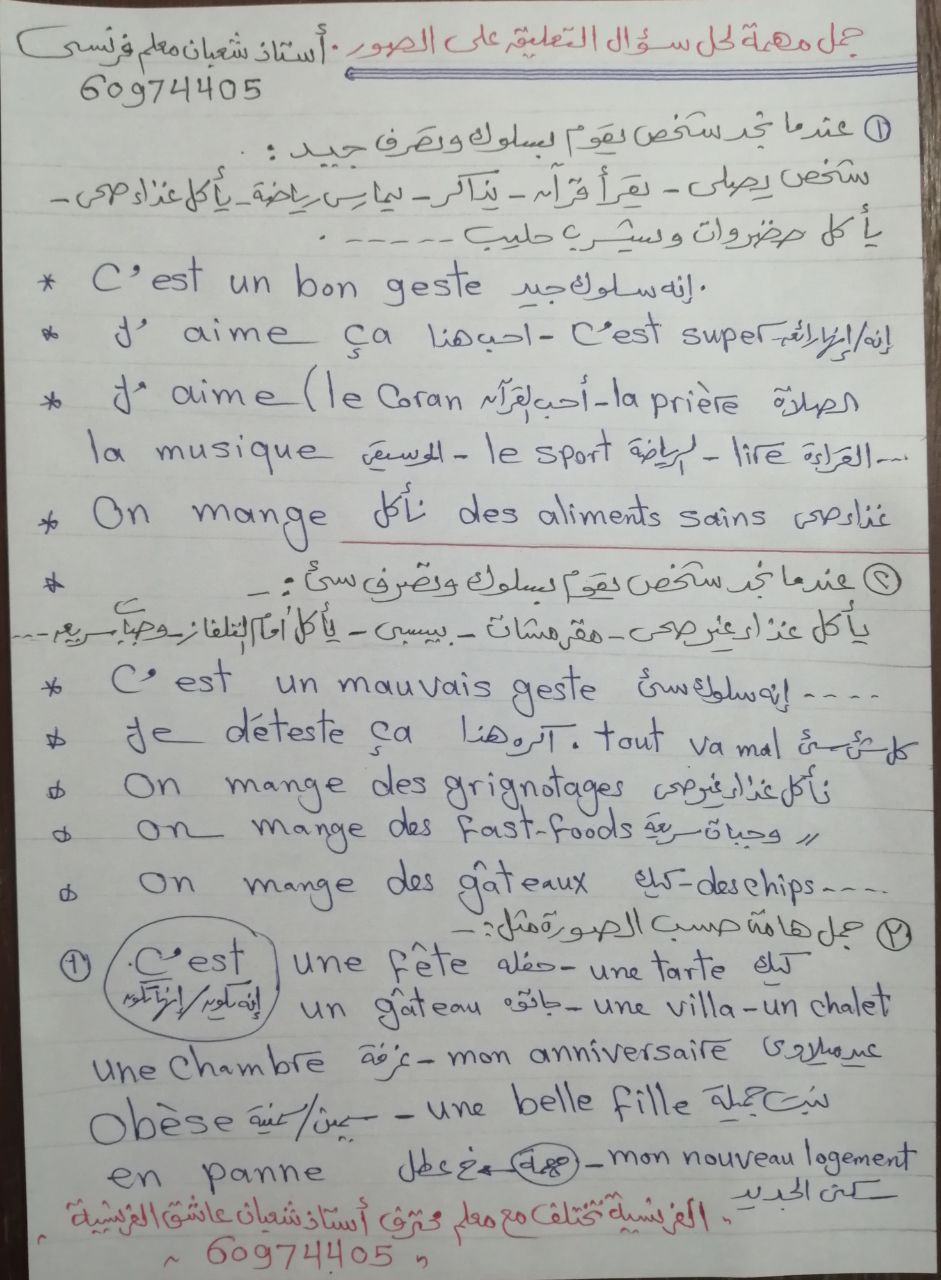 جمل مهمة لحل سؤال التعليق على الصور. أستاذ شعبان معلم فرنسى
60974405
① عندما تجد شخص يقوم بسلوك وتصرف جيد :
شخص يصلى - يقرأ قرآن - يذاكر - يمارس رياضة - يأكل غذاء صحى -
يأكل خضروات ويشرب حليب ----- .
* C'est un bon geste إنه سلوك جيد.
* J'aime ça احب هذا - C'est super إنه/إنها رائعه
* J'aime (le Coran أحب القرآن - la prière الصلاة
la musique الموسيقى - le sport الرياضة - lire القراءة ...
* On mange نأكل des aliments sains غذاء صحى
* ② عندما تجد شخص يقوم بسلوك وتصرف سئ :-
يأكل غذاء غير صحى - مقرمشات - بيبسى - يأكل أمام التلفاز - وجبات سريعه ---
* C'est un mauvais geste إنه سلوك سئ ----
* Je déteste ça أكره هذا . tout va mal كل شئ سئ
* On mange des grignotages نأكل غذاء غير صحى
* on mange des fast-foods وجبات سريعة 〃
* on mange des gâteaux كيك - des chips ----
② جمل هامة حسب الصورة مثل :-
① C'est une fête حفله - une tarte كيك
إنه يكون/إنها تكون un gâteau - une villa - un chalet
une chambre غرفة - mon anniversaire عيد ميلادى
Obèse سمين/سمينة - une belle fille بنت جميلة
en panne عطل مهمة - mon nouveau logement
سكنى الجديد
" الفرنسية تختلف مع معلم محترف أستاذ شعبان عاشق الفرنسية "
" 60974405 "